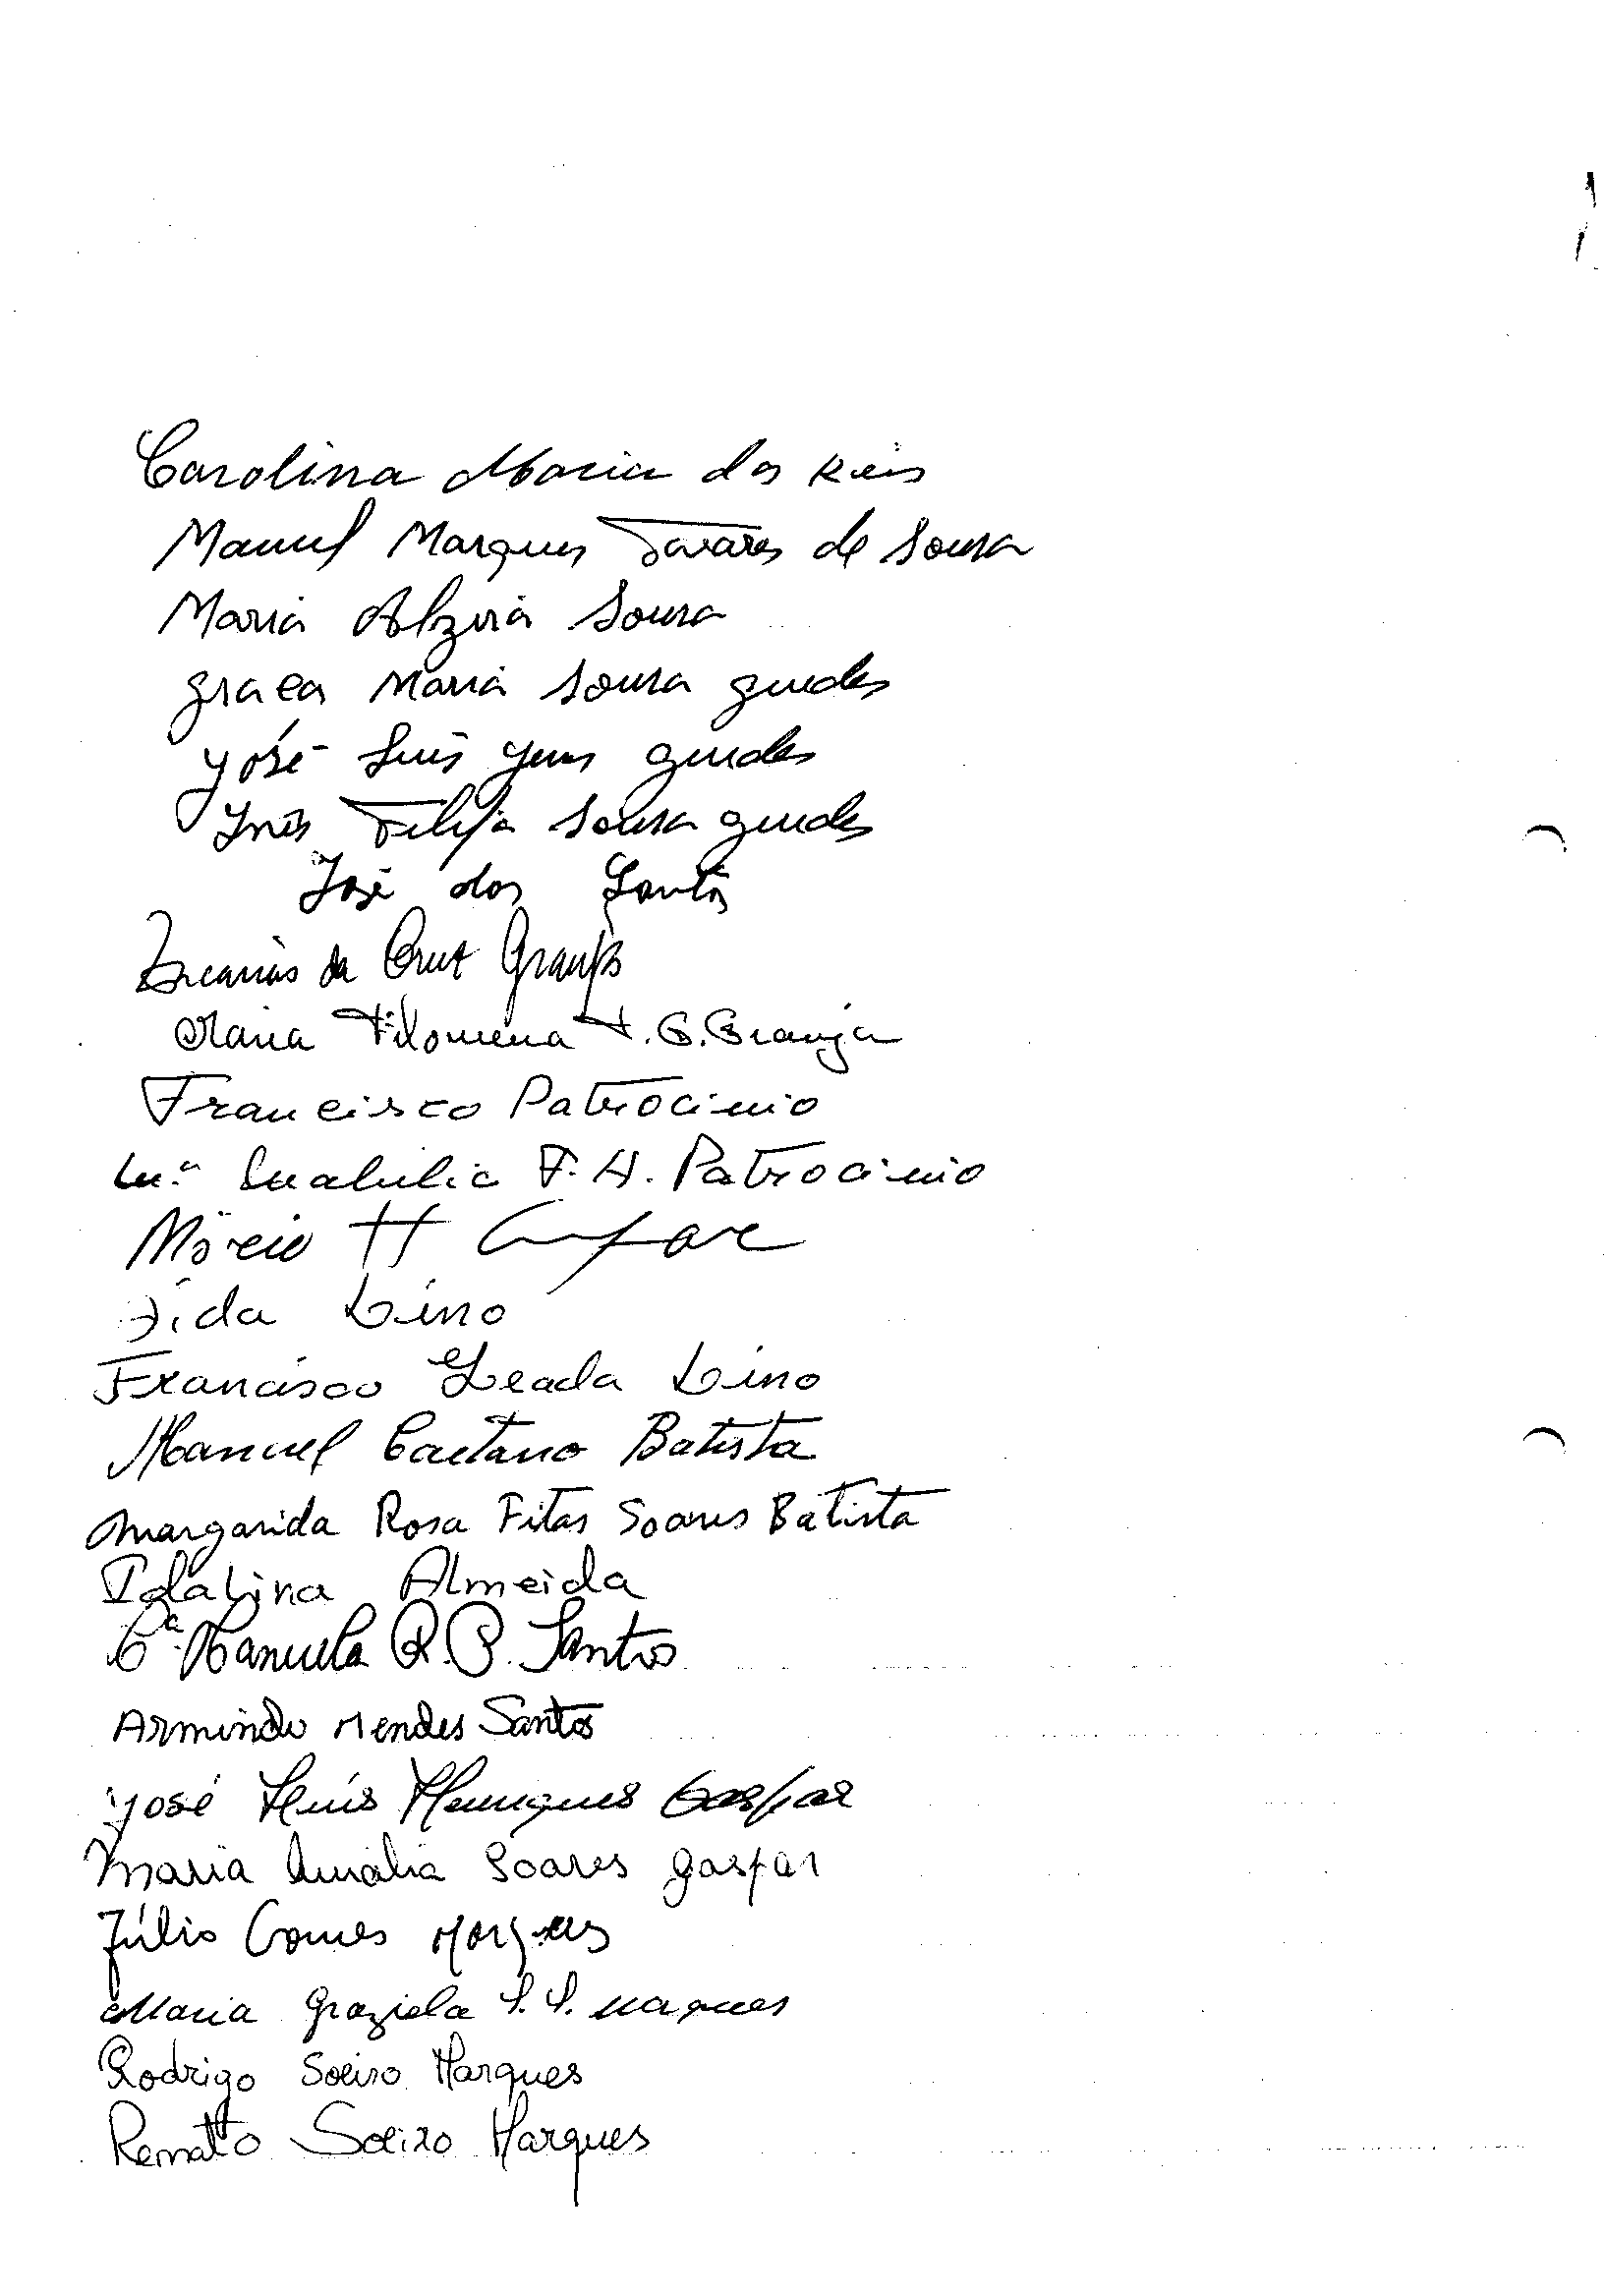 Carolina Maria dos Reis
Manuel Marques Tavares de Sousa
Maria Alzira Sousa
Graça Maria Sousa Guedes
José Luis Guedes
Inês Filipa Sousa Guedes
José dos Santos
Zacarias da Cruz Granja
Maria Filomena F. G. Granja
Francisco Patrocinio
Mª F. H. Patrocinio
H Gaspar
Lino
Francisco Lino
Manuel Caetano Batista
Margarida Rosa Fitas Soares Batista
Idalina Almeida
Cª. Manuela R. P. Santos
Armindo Mendes Santos
José Luís Henriques Gaspar
Maria Amália Soares Gaspar
Júlio Gomes Marques
Maria Graziela S. S. Marques
Rodrigo Soeiro Marques
Renato Soeiro Marques